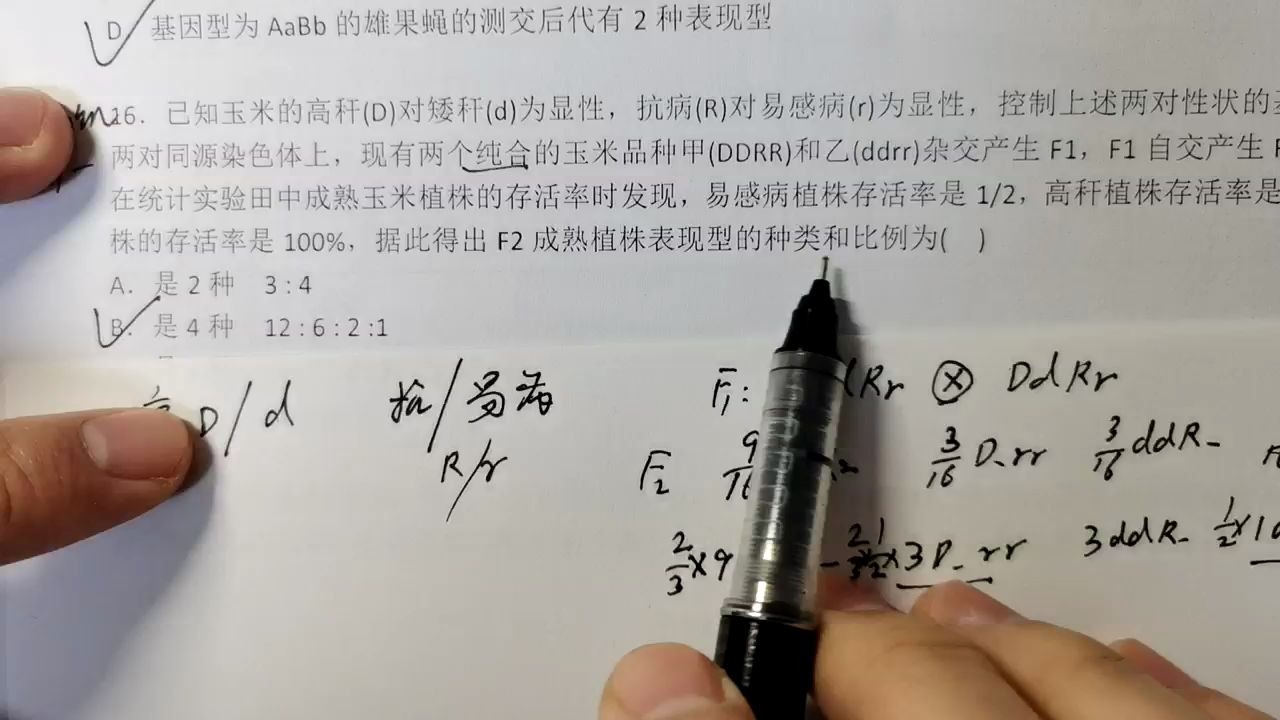 D 基因型为 AaBb 的雄果蝇的测交后代有 2 种表现型
16. 已知玉米的高秆(D)对矮秆(d)为显性，抗病(R)对易感病(r)为显性，控制上述两对性状的
两对同源染色体上，现有两个纯合的玉米品种甲(DDRR)和乙(ddrr)杂交产生 F1，F1 自交产生
在统计实验田中成熟玉米植株的存活率时发现，易感病植株存活率是 1/2，高秆植株存活率是
株的存活率是 100%，据此得出 F2 成熟植株表现型的种类和比例为( )
A. 是 2 种 3 : 4
B. 是 4 种 12 : 6 : 2 : 1
D/d 抗/易病 F1: Rr ⊗ DdRr
R/r F2 3/16 D_rr 3/16 ddR_
2/3×9 3D_rr 3ddR_ 1/2×1